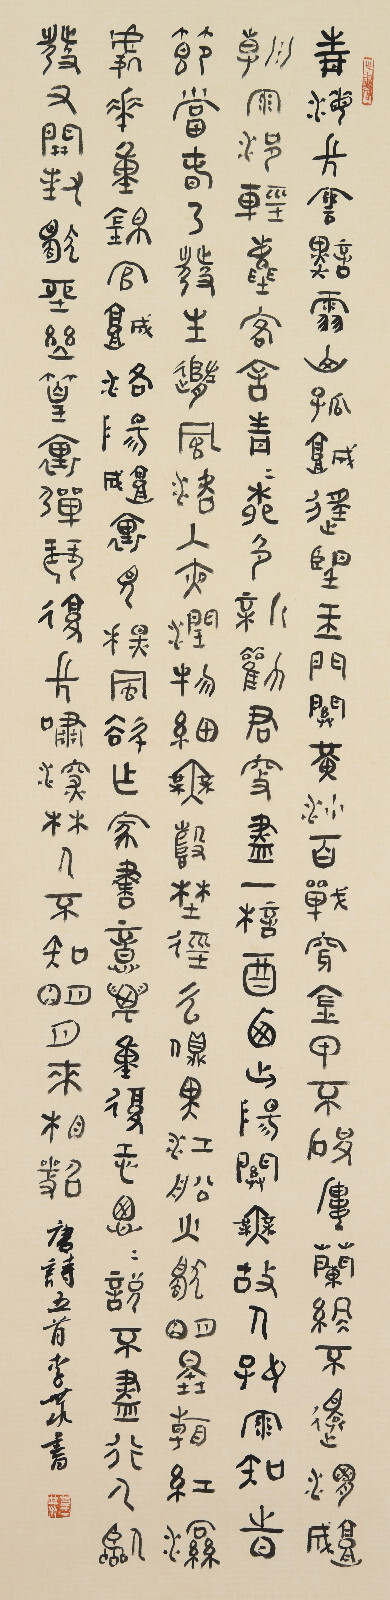 青海長雲暗雪山孤城遙望玉門關黃沙百戰穿金甲不破樓蘭終不還渭城
朝雨浥輕塵客舍青〻柳色新勸君更盡一杯酒西出陽關無故人好雨知時
節當春乃發生隨風潛入夜潤物細無聲野徑雲俱黑江船火獨明曉看紅濕
處花重錦官城洛陽城裏見秋風欲作家書意萬重復恐匆〻說不盡行人臨
發又開封獨坐幽篁裏彈琴復長嘯深林人不知明月來相照唐詩五首李書